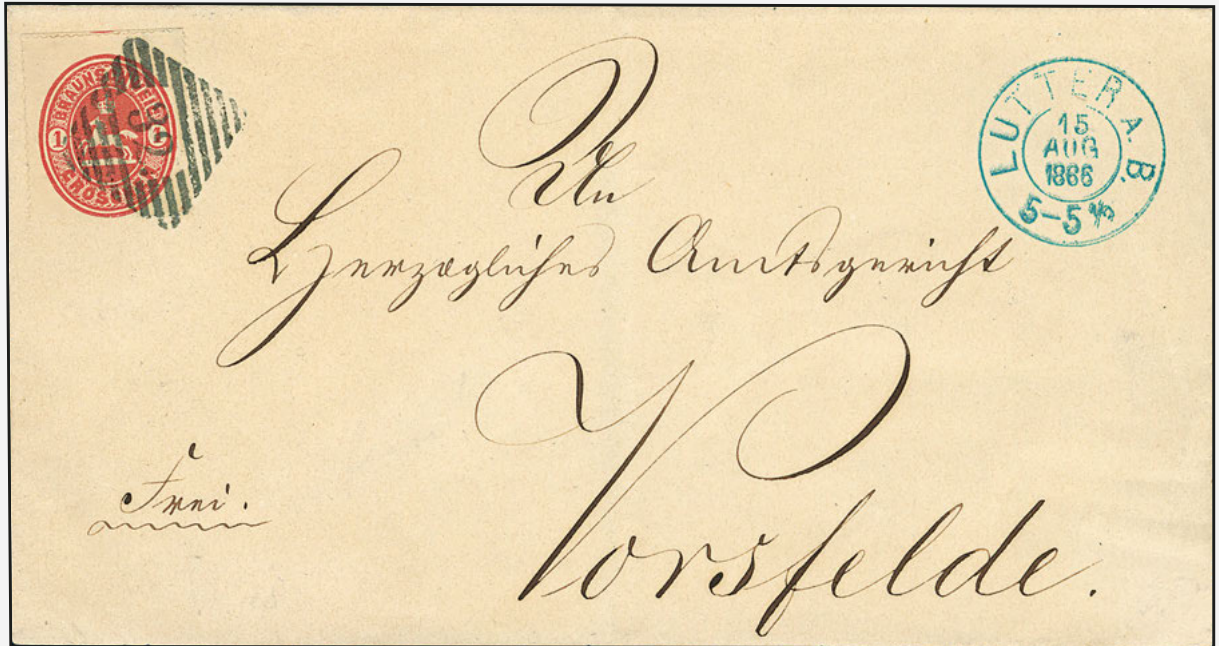 BRAUNSCHWEIG
1
GROSCHEN
LUTTER A. B.
15
AUG
1866
5-5¾
An
Herzogliches Amtsgericht
Vorsfelde.
Frei.